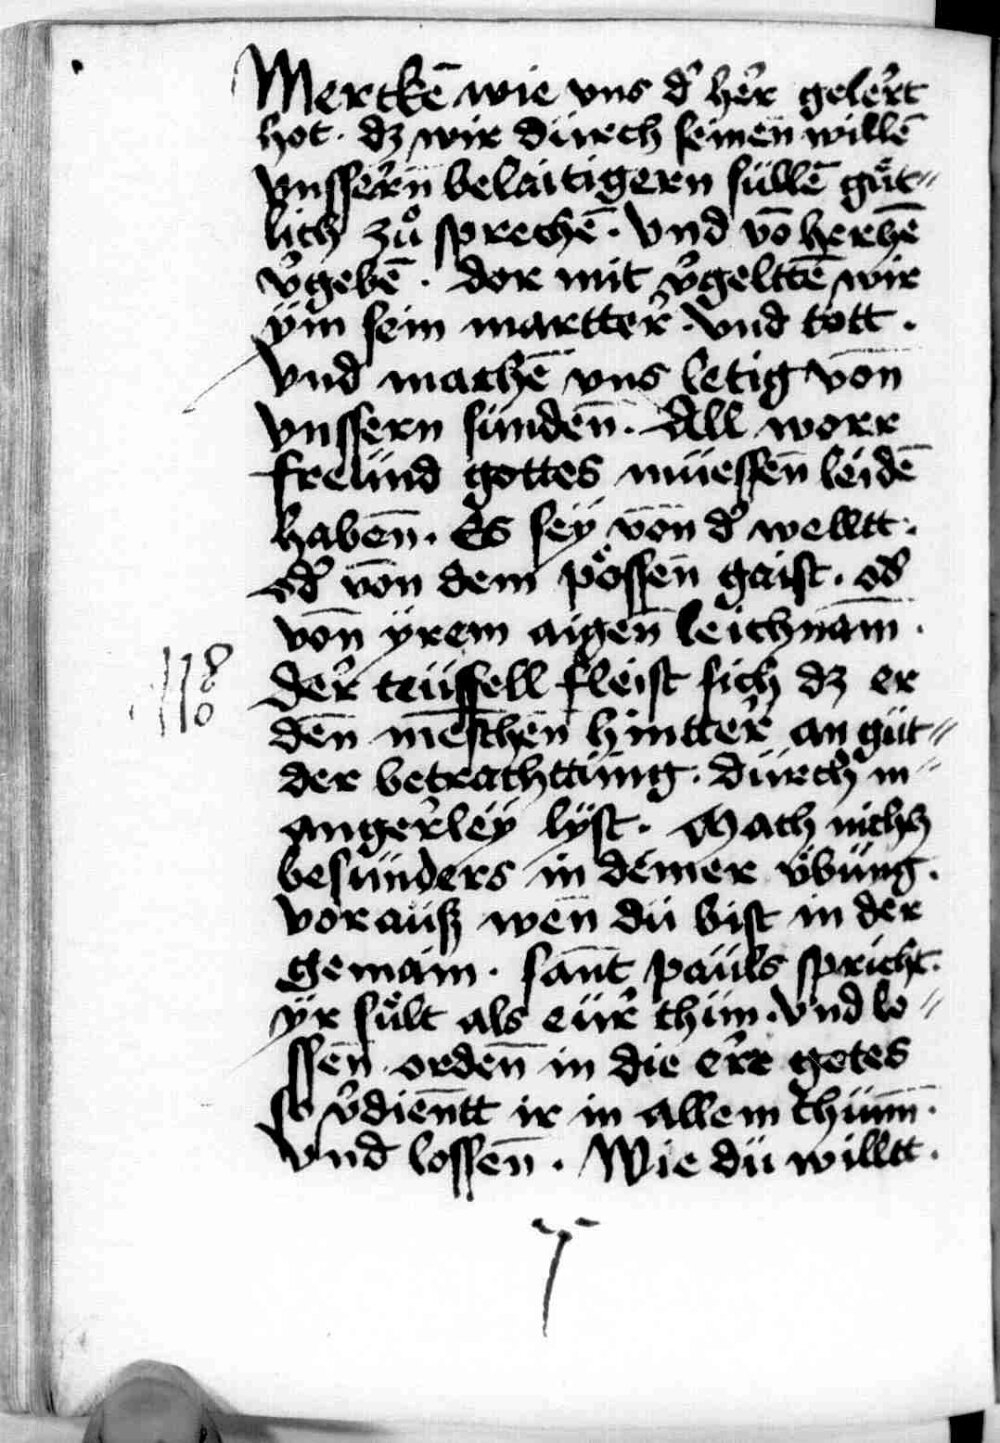 Merckē wie vns d' her gelert
hot · dz wir dürch seinen willē
vnssern̄ belaitigern süllē gůt⸗
lich zů sprechē · Vnd vō herczē
v'gebē · dor mit v'gelttē wir
ÿm sein martter · Vnd tott ·
Vnd machē vns letig von̄
vnssern sünden̄ · All worr
freünd gottes müessen̄ leidē
haben̄ · Es seÿ von̄ d' welltt ·
od' von̄ dem pössen gaist · od'
von̄ ÿrem aigen̄ leichnam̄ ·
Der teüffell fleist sich dz er
den̄ mēschen̄ hintter an güt⸗
der betrachttüng · dürch m⸗
angerleÿ lÿst · Mach nichcz
besünders in deiner v̈büng ·
vorauß wen̄ dü bist in der
gemain · sant̄ paüls spricht ·
ÿr sült als eür thün · Vnd lo⸗
ssen̄ orden̄ in die err gotes
so v'dien̄tt ir in allem thün̄ ·
Vnd lossen̄ · Wie dü willtt ·
118